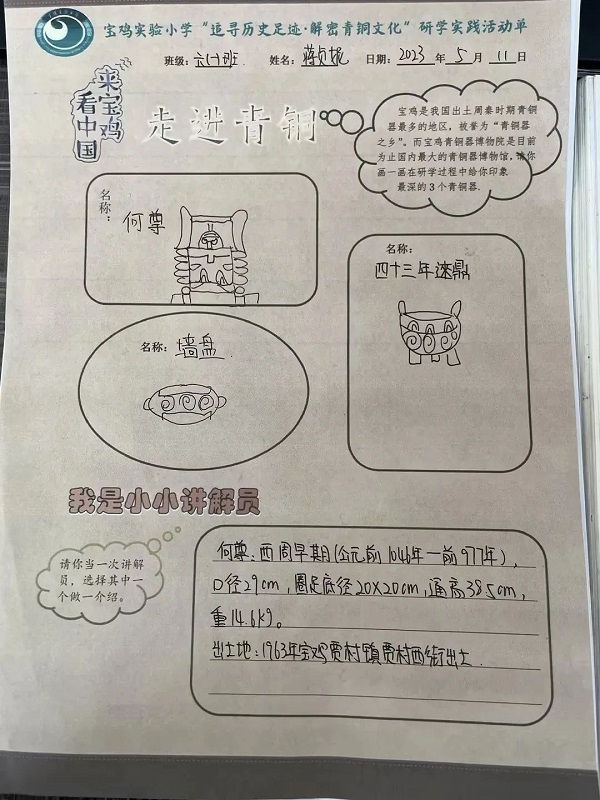 宝鸡实验小学“追寻历史足迹·解密青铜文化”研学实践活动单
班级: 六(1)班 姓名: 日期: 2023 年 5 月 11 日
来宝鸡
看中国
走进青铜
宝鸡是我国出土周秦时期青铜
器最多的地区，被誉为“青铜器
之乡”。而宝鸡青铜器博物院是目前
为止国内最大的青铜器博物馆，请你
画一画在研学过程中给你印象
最深的3个青铜器.
名称: 何尊
名称:
四十三年逨鼎
名称: 墙盘.
我是小小讲解员
请你当一次讲解
员，选择其中一
个做一介绍。
何尊: 西周早期(公元前1046年一前977年),
口径29cm, 圈足底径20X20cm, 通高38.5cm,
重14.6kg。
出土地: 1963年宝鸡贾村镇贾村西街出土.